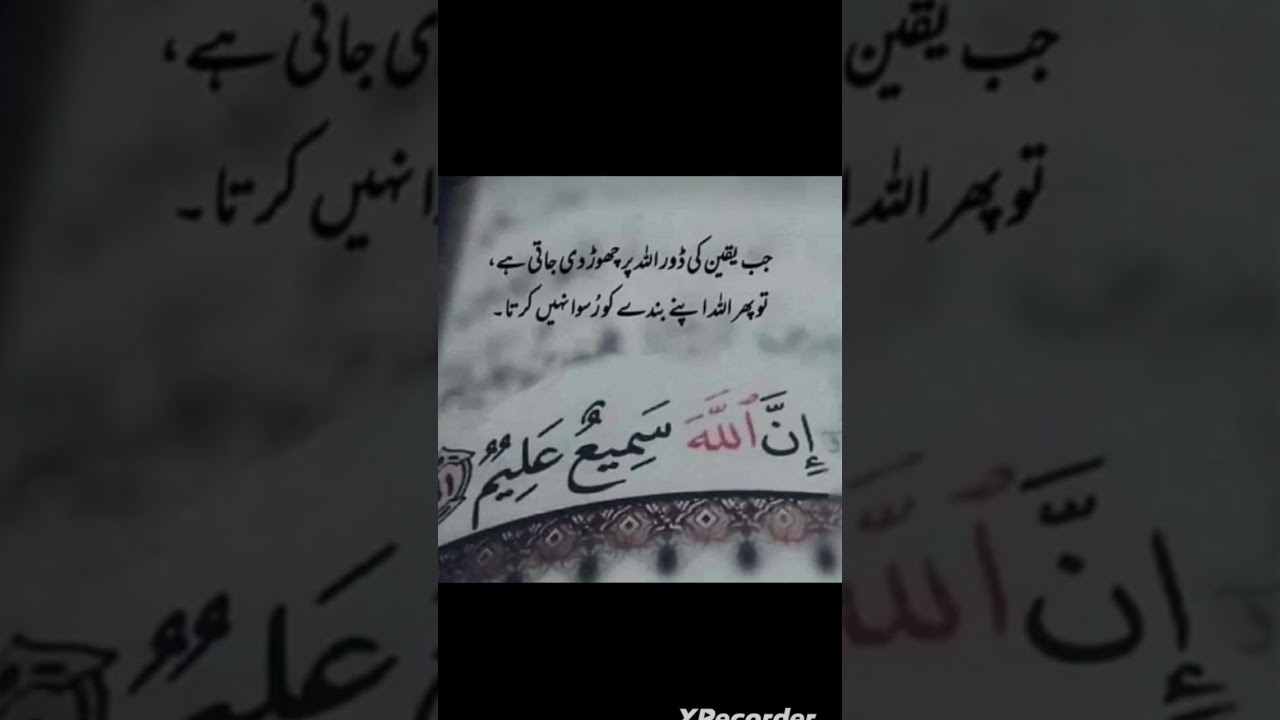 جب یقین کی ڈور اللہ پر چھوڑ دی جاتی ہے،
تو پھر اللہ اپنے بندے کو رُسوا نہیں کرتا۔
إِنَّ ٱللَّهَ سَمِيعٌ عَلِيمٌ
XRecorder